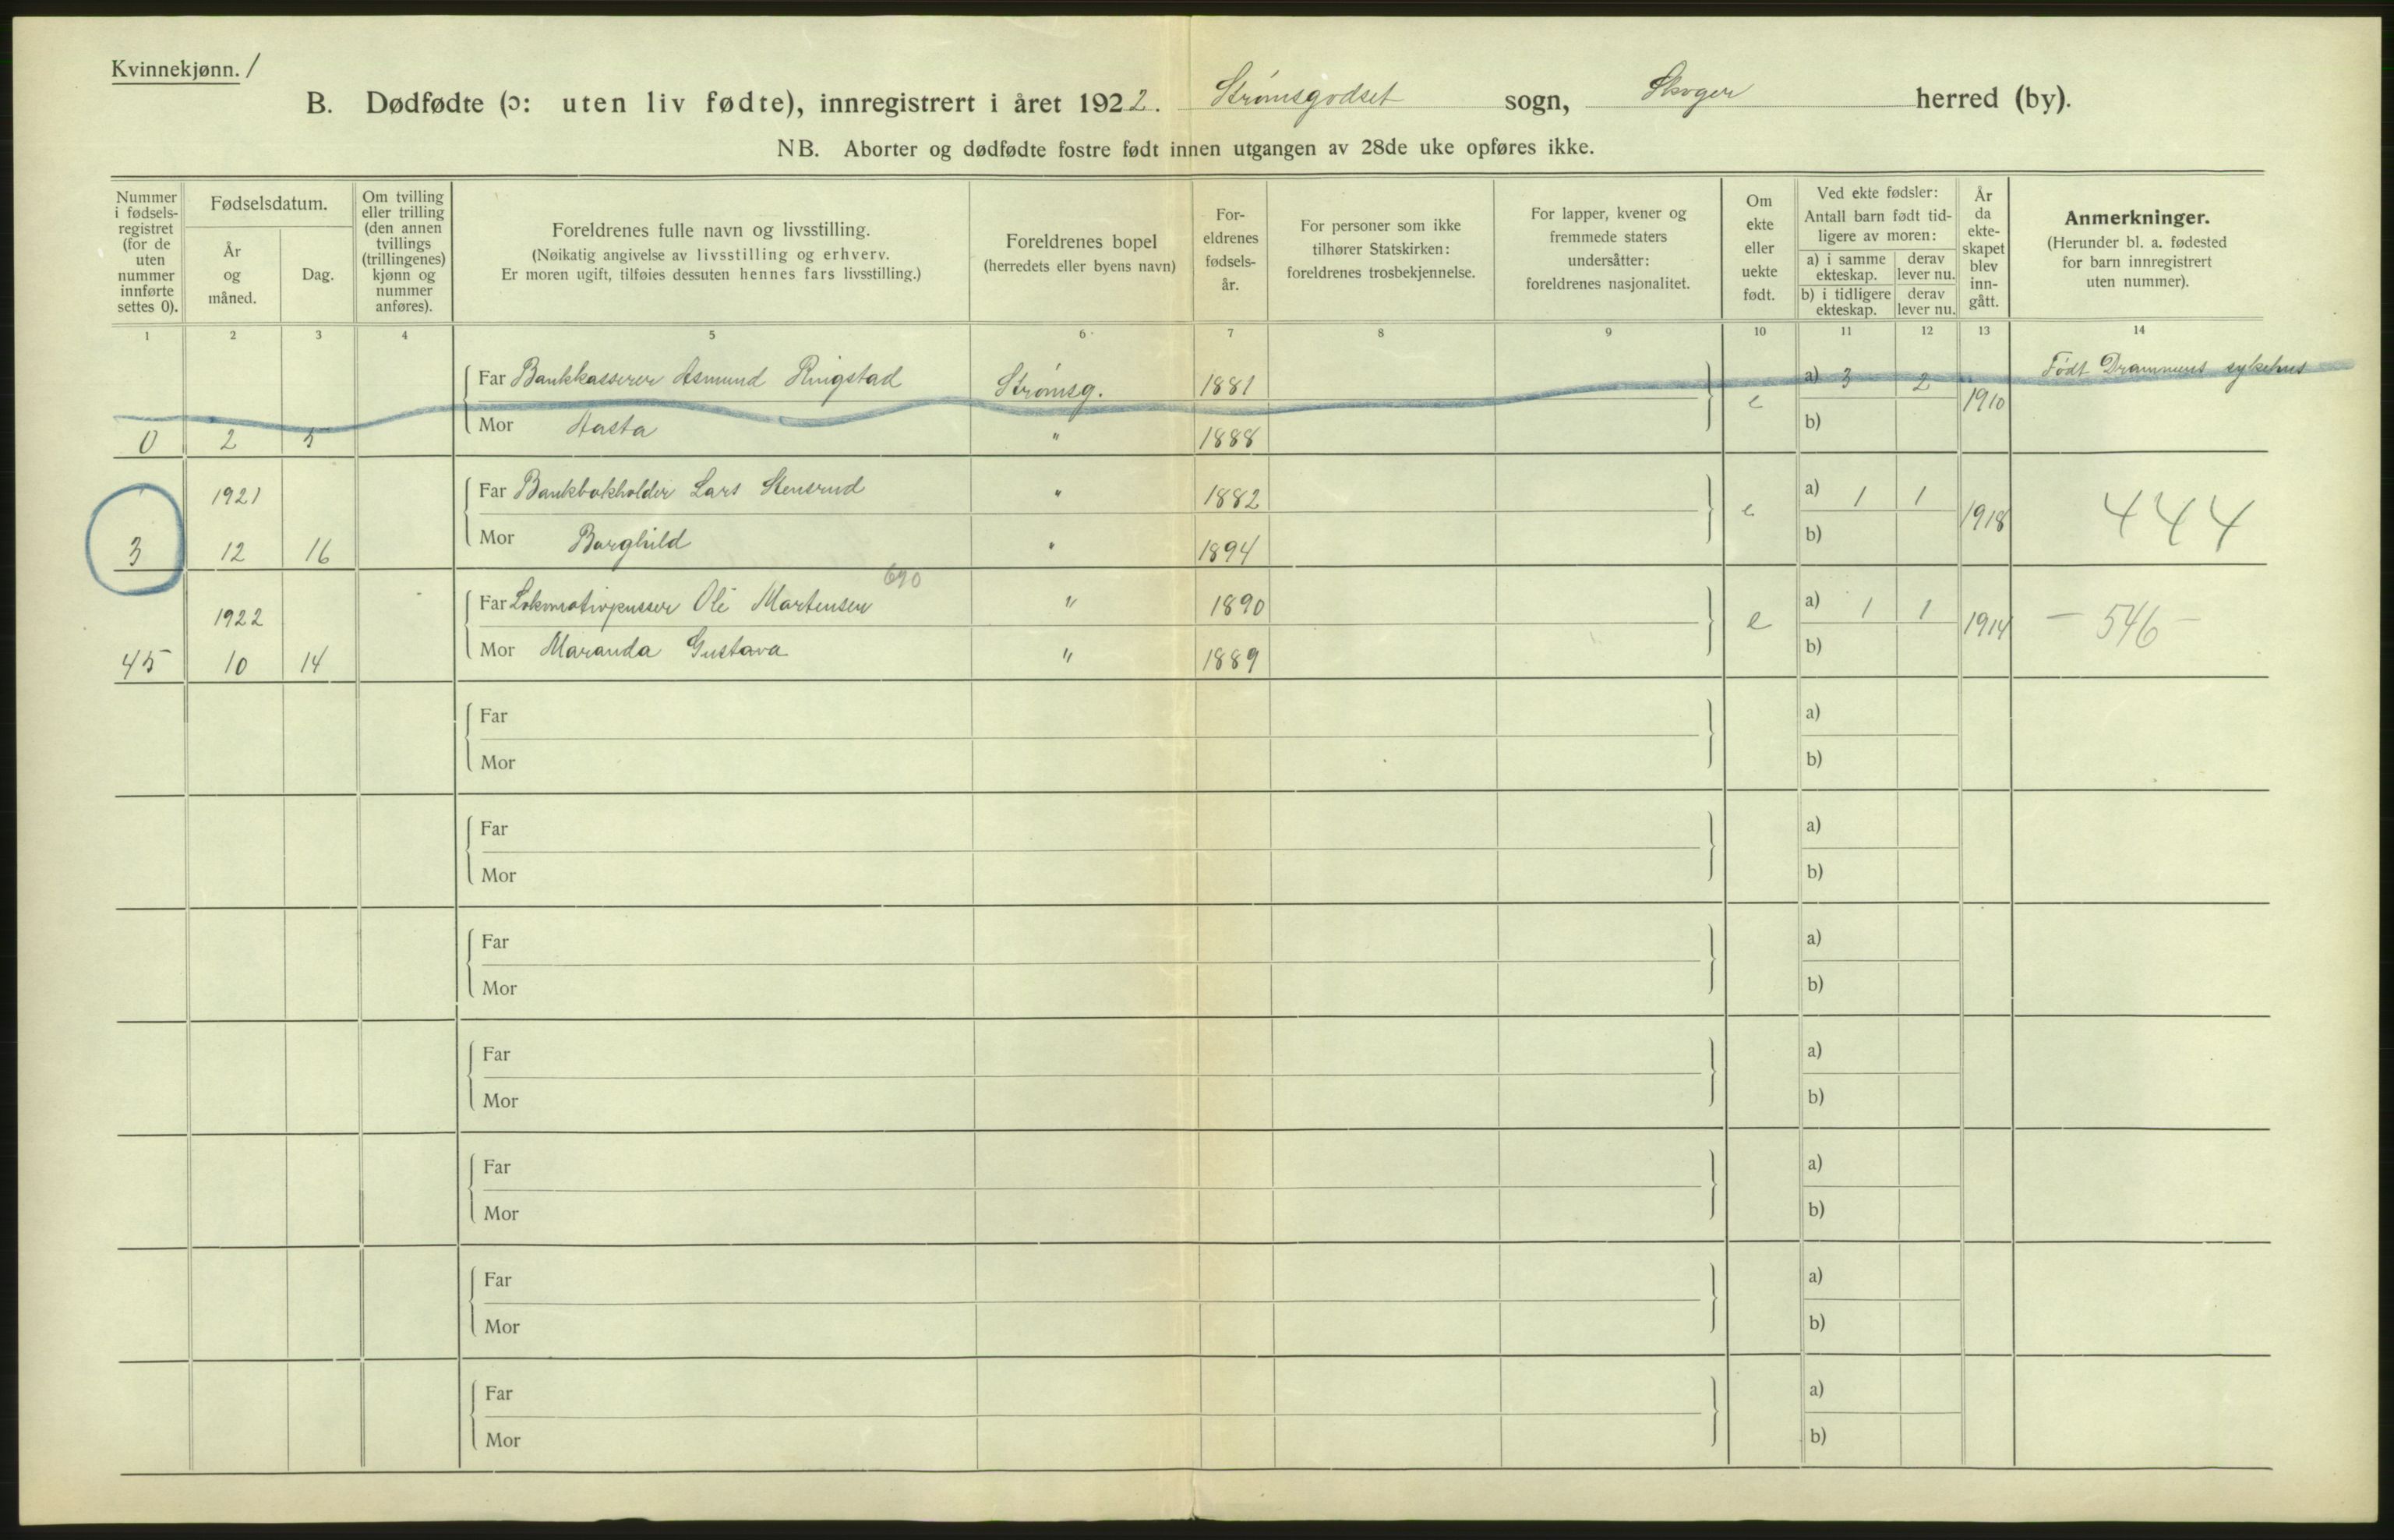 Kvinnekjønn. /
B. Dødfødte (ɔ: uten liv fødte), innregistrert i året 1922. Strømsgodset sogn, Skoger herred (by).
NB. Aborter og dødfødte fostre født innen utgangen av 28de uke opføres ikke.
Nummer i fødsels- registret (for de uten nummer innførte settes 0).
Fødselsdatum.
År og måned.
Dag.
Om tvilling eller trilling (den annen tvillings (trillingenes) kjønn og nummer anføres).
Foreldrenes fulle navn og livsstilling.
(Nøikatig angivelse av livsstilling og erhverv.
Er moren ugift, tilføies dessuten hennes fars livsstilling.)
Foreldrenes bopel
(herredets eller byens navn)
For- eldrenes fødsels- år.
For personer som ikke tilhører Statskirken: foreldrenes trosbekjennelse.
For lapper, kvener og fremmede staters undersåtter: foreldrenes nasjonalitet.
Om ekte eller uekte født.
Ved ekte fødsler:
Antall barn født tid- ligere av moren:
a) i samme ekteskap. derav lever nu.
b) i tidligere ekteskap. derav lever nu.
År da ekte- skapet blev inn- gått.
Anmerkninger.
(Herunder bl. a. fødested for barn innregistrert uten nummer).
1 2 3 4 5 6 7 8 9 10 11 12 13 14
Far Bankkasserer Asmund Ringstad Strømsg. 1881 a) 3 2 Født Drammens sykehus
e 1910
0 2 5 Mor Aasta " 1888 b)
1921 Far Bankbokholder Lars Stensrud " 1882 a) 1 1
e 1918 444
3 12 16 Mor Borghild " 1894 b)
690
1922 Far Lokomotivpusser Ole Martensen " 1890 a) 1 1
e 1914 – 546 –
45 10 14 Mor Maranda Gustava " 1889 b)
Far a)
Mor b)
Far a)
Mor b)
Far a)
Mor b)
Far a)
Mor b)
Far a)
Mor b)
Far a)
Mor b)
Far a)
Mor b)